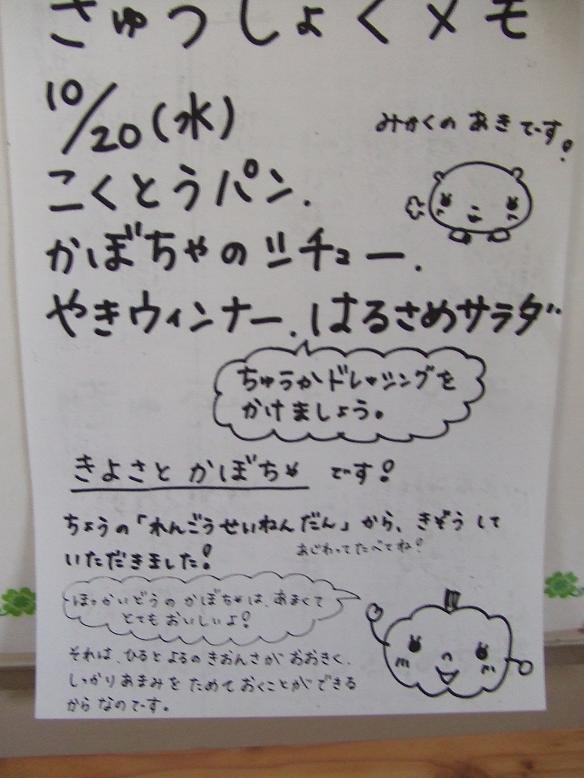 きゅうしょくメモ
10/20(水)
みかくの あきです!
こくとうパン.
かぼちゃのシチュー.
やきウィンナー.はるさめサラダ
ちゅうかドレッシングを
かけましょう。
きよさと かぼちゃ です!
ちょうの「れんごうせいねんだん」から、きぞうして
いただきました!
あじわってたべてね!
ほっかいどうの かぼちゃは、あまくて
とても おいしいよ!
それは、ひると よるの きおんさが おおきく、
しっかりあまみを ためて おくことが できる
から なのです。